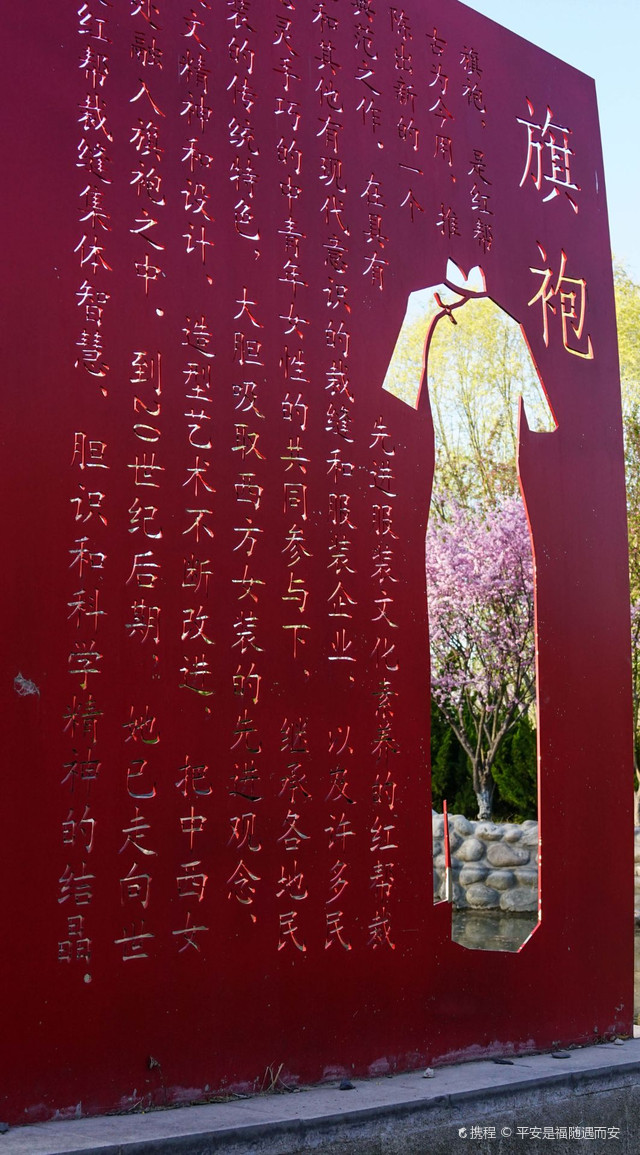 旗袍
旗袍，是红帮
古为今用、推
陈出新的一个
典范之作。在具有先进服装文化素养的红帮裁
和其他有现代意识的裁缝和服装企业、以及许多民
心灵手巧的中青年女性的共同参与下、继承各地民
装的传统特色，大胆吸取西方女装的先进观念、
文精神和设计、造型艺术不断改进、把中西女
处融入旗袍之中。到20世纪后期，她已走向世
红帮裁缝集体智慧、胆识和科学精神的结晶。
携程 © 平安是福随遇而安